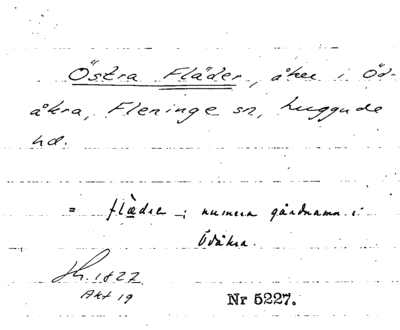 Östra Fläder, åker i Öd-
åkra, Fleninge sn, Luggude
hd.
= flädεr ; numera gårdnamn i
Ödåkra.
Sk. 1827
Akt 19
Nr 5227.